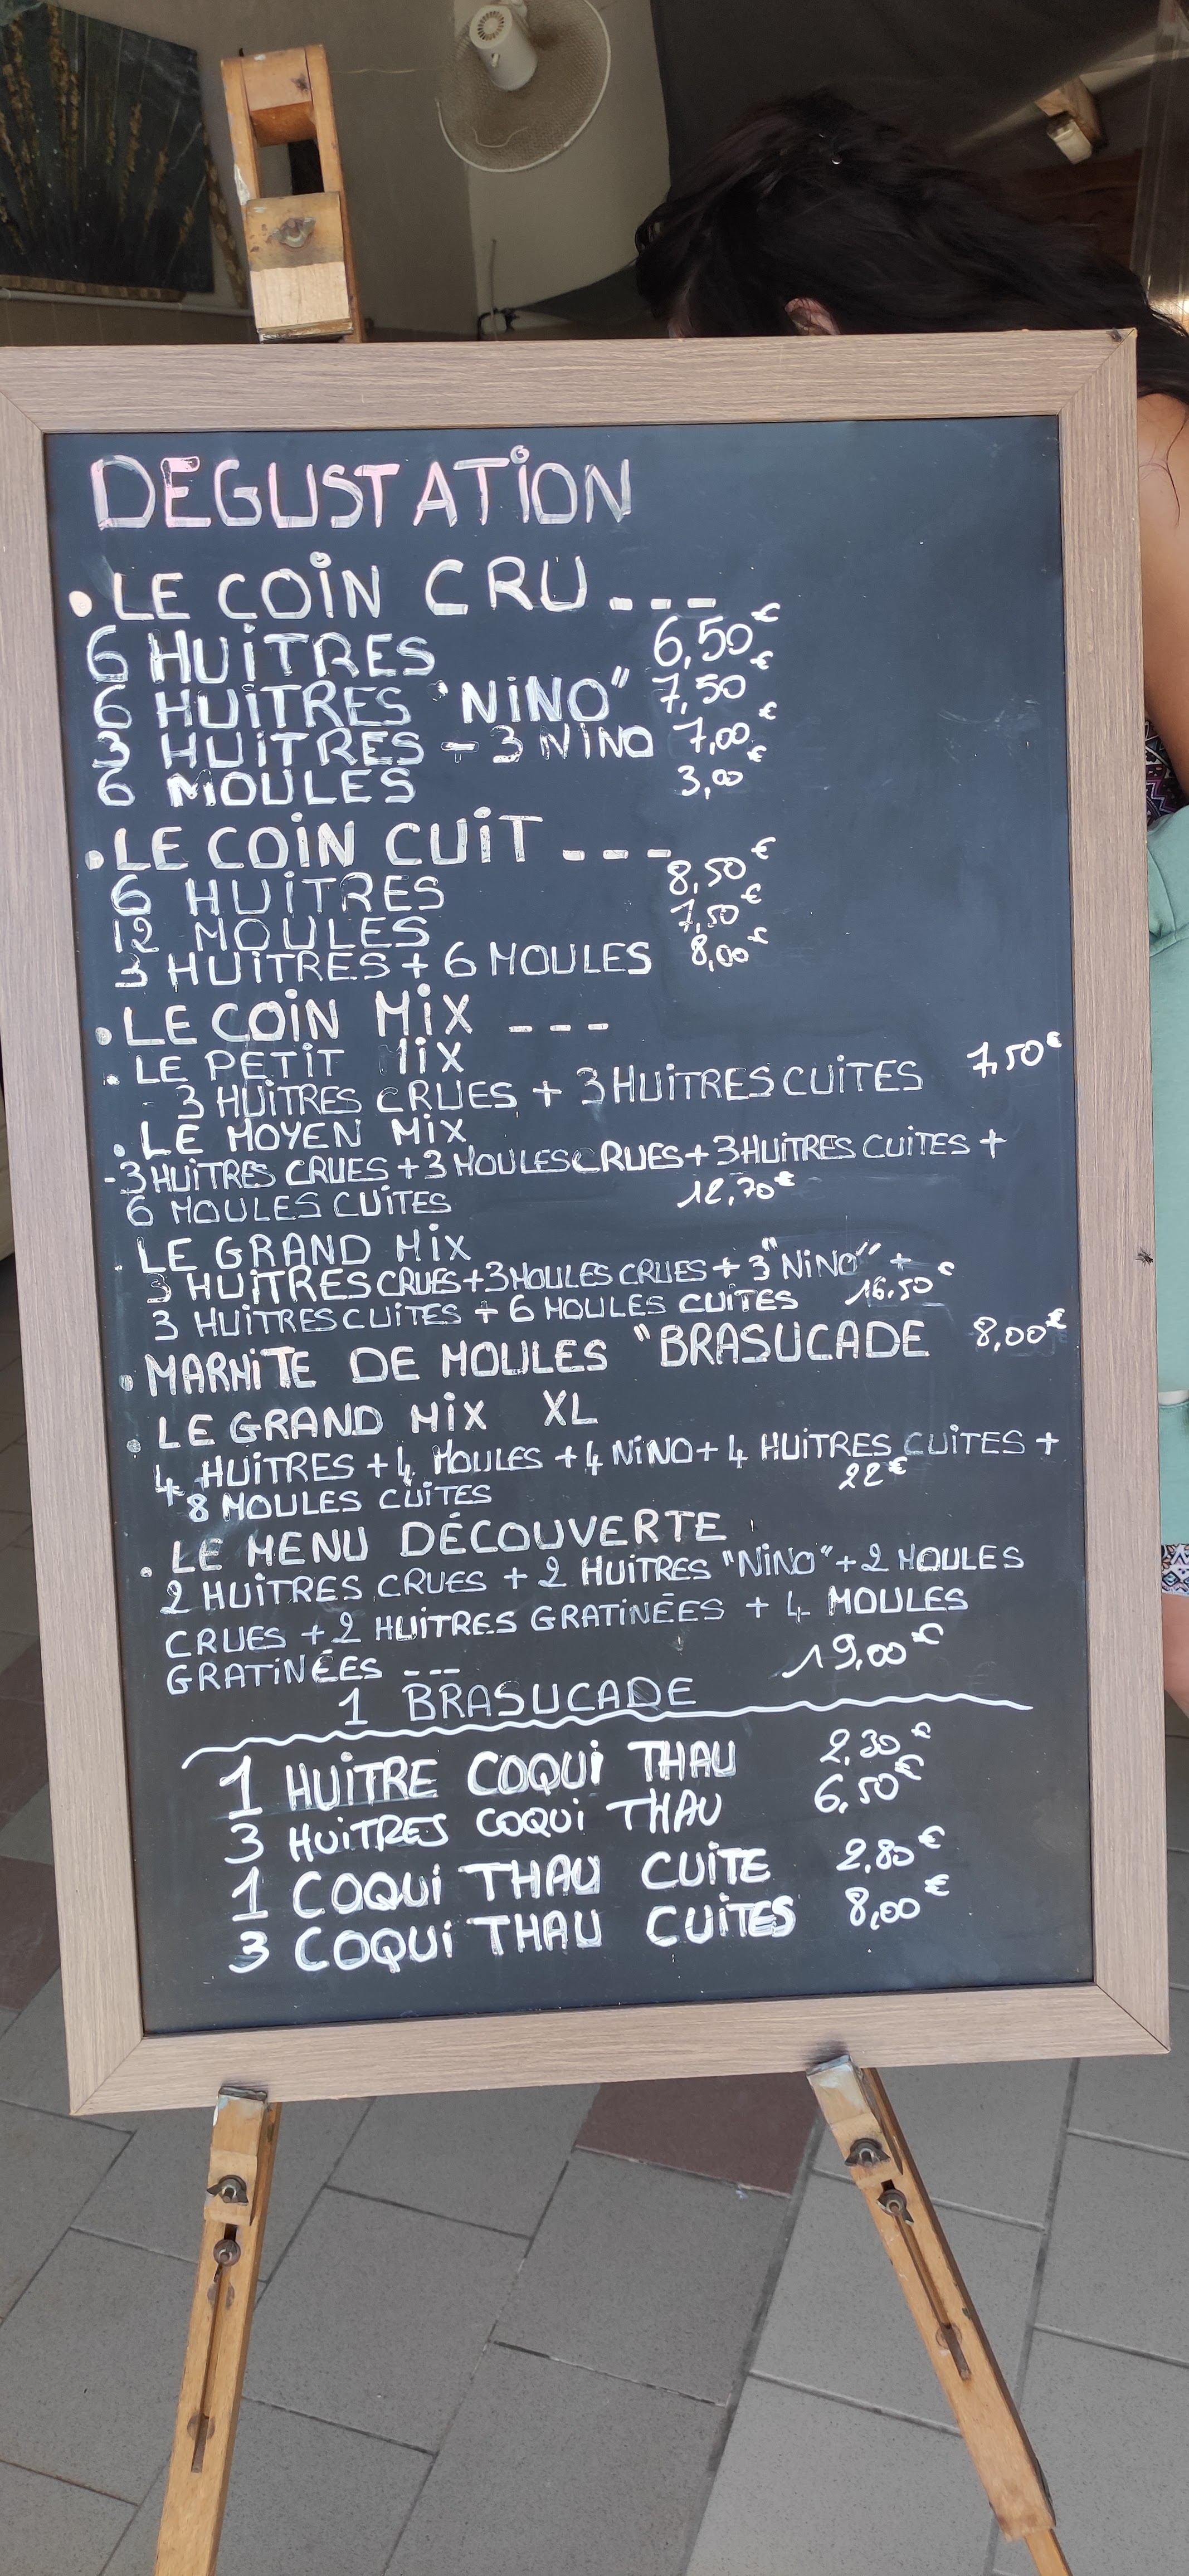 DEGUSTATION
• LE COIN CRU ---
6 HUITRES 6,50€
6 HUITRES "NINO" 7,50€
3 HUITRES - 3 NINO 7,00€
6 MOULES 3,00€
• LE COIN CUIT ---
6 HUITRES 8,50€
12 MOULES 7,50€
3 HUITRES + 6 MOULES 8,00€
• LE COIN MIX ---
. LE PETIT MIX
- 3 HUITRES CRUES + 3 HUITRES CUITES 7,50€
. LE MOYEN MIX
- 3 HUITRES CRUES + 3 MOULES CRUES + 3 HUITRES CUITES +
6 MOULES CUITES 12,70€
. LE GRAND MIX
3 HUITRES CRUES + 3 MOULES CRUES + 3 "NINO" +
3 HUITRES CUITES + 6 MOULES CUITES 16.50€
• MARMITE DE MOULES "BRASUCADE 8,00€
. LE GRAND MIX XL
4 HUITRES + 4 MOULES + 4 NINO + 4 HUITRES CUITES +
+ 8 MOULES CUITES 22€
. LE MENU DÉCOUVERTE
2 HUITRES CRUES + 2 HUITRES "NINO" + 2 MOULES
CRUES + 2 HUITRES GRATINÉES + 4 MOULES
GRATINÉES --- 19,00€
1 BRASUCADE
1 HUITRE COQUI THAU 2,30€
3 HUITRES COQUI THAU 6,50€
1 COQUI THAU CUITE 2,80€
3 COQUI THAU CUITES 8,00€